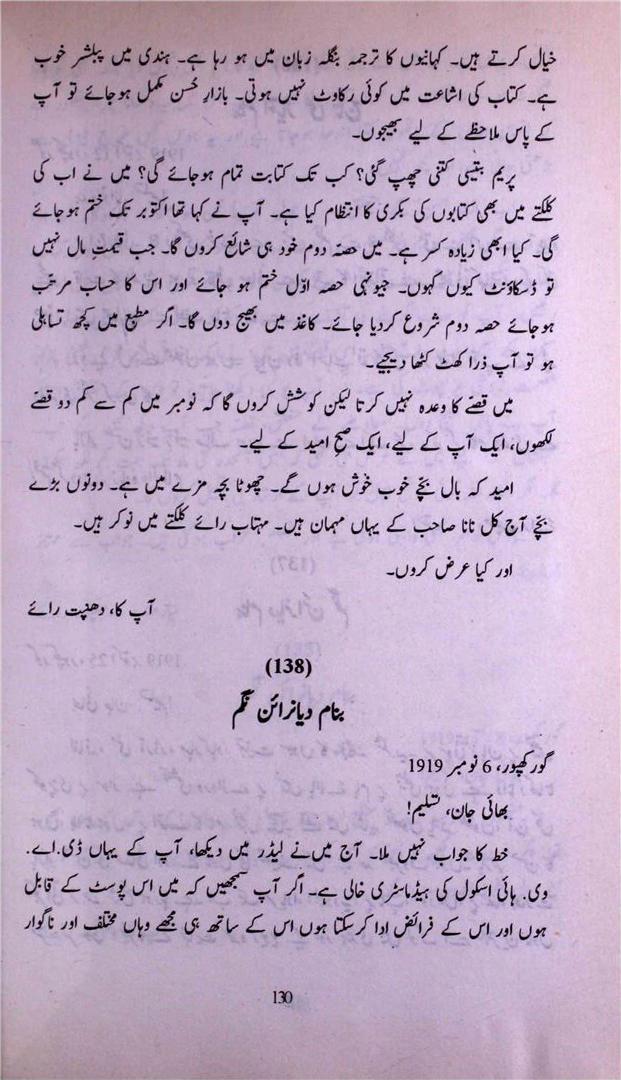 خیال کرتے ہیں۔ کہانیوں کا ترجمہ بنگلہ زبان میں ہو رہا ہے۔ ہندی میں پبلشر خوب
ہے۔ کتاب کی اشاعت میں کوئی رکاوٹ نہیں ہوتی۔ بازارِ حُسن مکمل ہوجائے تو آپ
کے پاس ملاحظے کے لیے بھیجوں۔
پریم بتیسی کتنی چھپ گئی؟ کب تک کتابت تمام ہوجائے گی؟ میں نے اب کی
کلکتے میں بھی کتابوں کی بکری کا انتظام کیا ہے۔ آپ نے کہا تھا اکتوبر تک ختم ہوجائے
گی۔ کیا ابھی زیادہ کسر ہے۔ میں حصّہ دوم خود ہی شائع کروں گا۔ جب قیمتِ مال نہیں
تو ڈسکاؤنٹ کیوں کہوں۔ جیونہی حصہ اوّل ختم ہو جائے اور اس کا حساب مرتب
ہوجائے حصہ دوم شروع کردیا جائے۔ کاغذ میں بھیج دوں گا۔ اگر مطبع میں کچھ تساہلی
ہو تو آپ ذرا کھٹ کھٹا دیجیے۔
میں قصّے کا وعدہ نہیں کرتا لیکن کوشش کروں گا کہ نومبر میں کم سے کم دو قصّے
لکھوں، ایک آپ کے لیے، ایک صبح امید کے لیے۔
امید کہ بال بچّے خوب خوش ہوں گے۔ چھوٹا بچہ مزے میں ہے۔ دونوں بڑے
بچّے آج کل نانا صاحب کے یہاں مہمان ہیں۔ مہتاب رائے کلکتے میں نوکر ہیں۔
اور کیا عرض کروں۔
آپ کا، دھنپت رائے
(138)
بنام دیانرائن نگم
گورکھپور، 6 نومبر 1919
بھائی جان، تسلیم!
خط کا جواب نہیں ملا۔ آج میں نے لیڈر میں دیکھا، آپ کے یہاں ڈی.اے.
وی. ہائی اسکول کی ہیڈماسٹری خالی ہے۔ اگر آپ سمجھیں کہ میں اس پوسٹ کے قابل
ہوں اور اس کے فرائض ادا کرسکتا ہوں اس کے ساتھ ہی مجھے وہاں مختلف اور ناگوار
130